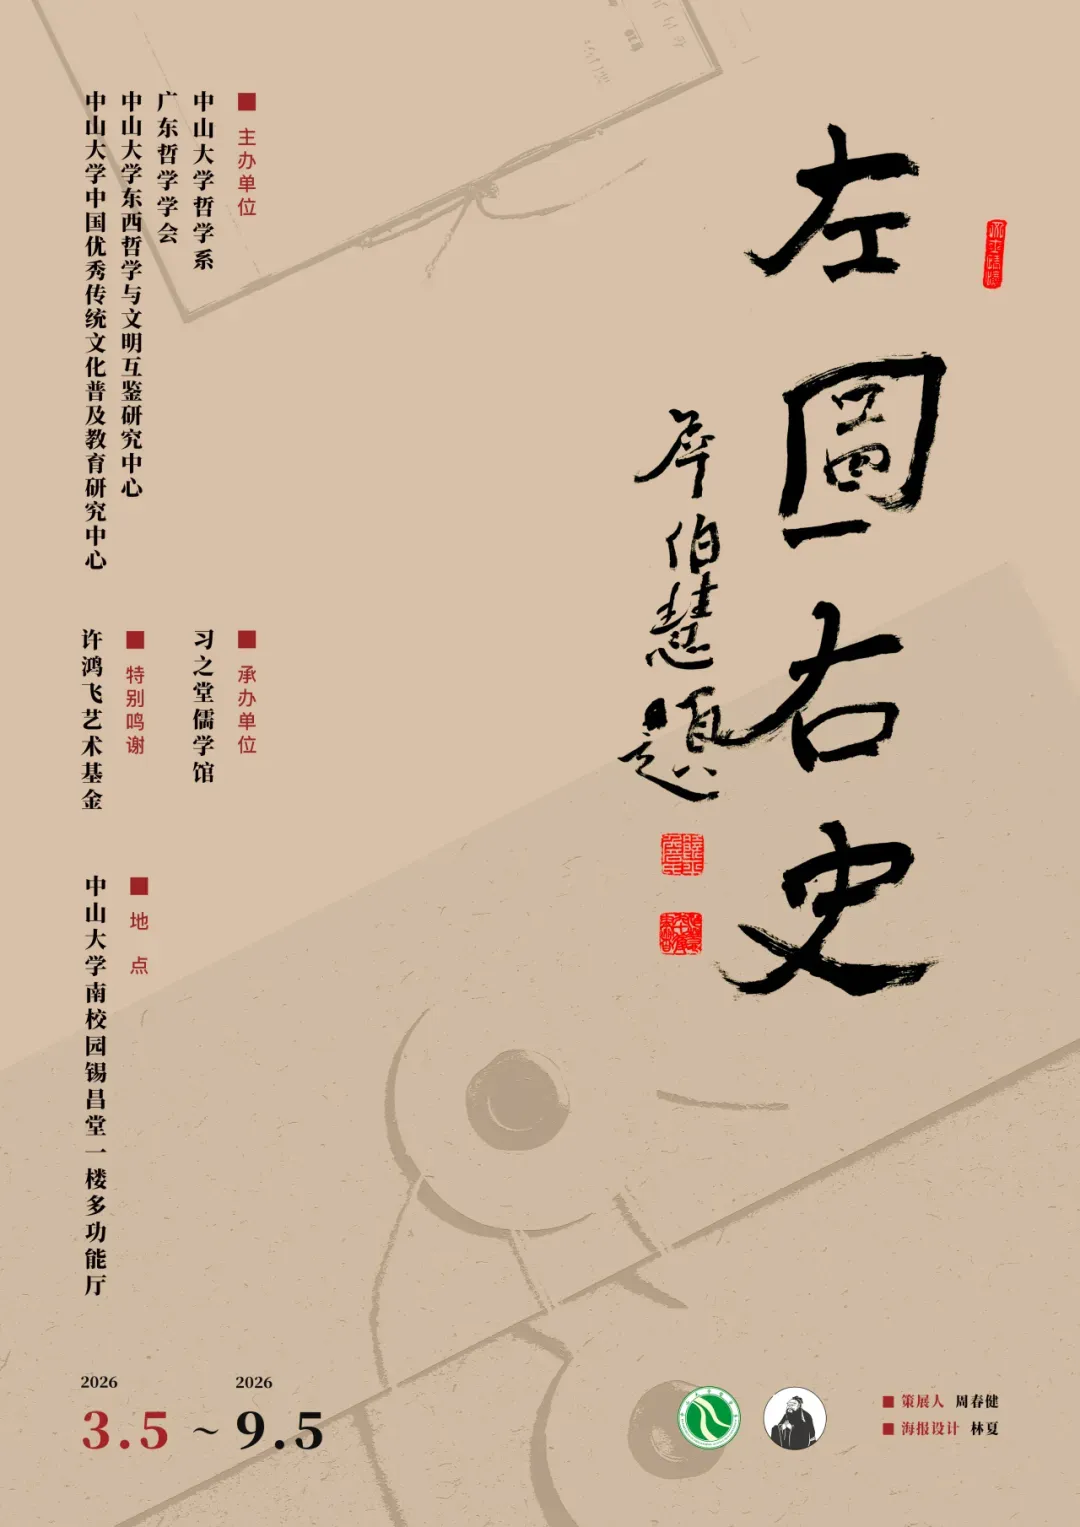 左圖右史
岑伯慧題
主办单位
中山大学哲学系
广东哲学学会
中山大学东西哲学与文明互鉴研究中心
中山大学中国优秀传统文化普及教育研究中心
承办单位
习之堂儒学馆
特别鸣谢
许鸿飞艺术基金
地 点
中山大学南校园锡昌堂一楼多功能厅
2026
3.5
~
2026
9.5
策展人 周春健
海报设计 林夏